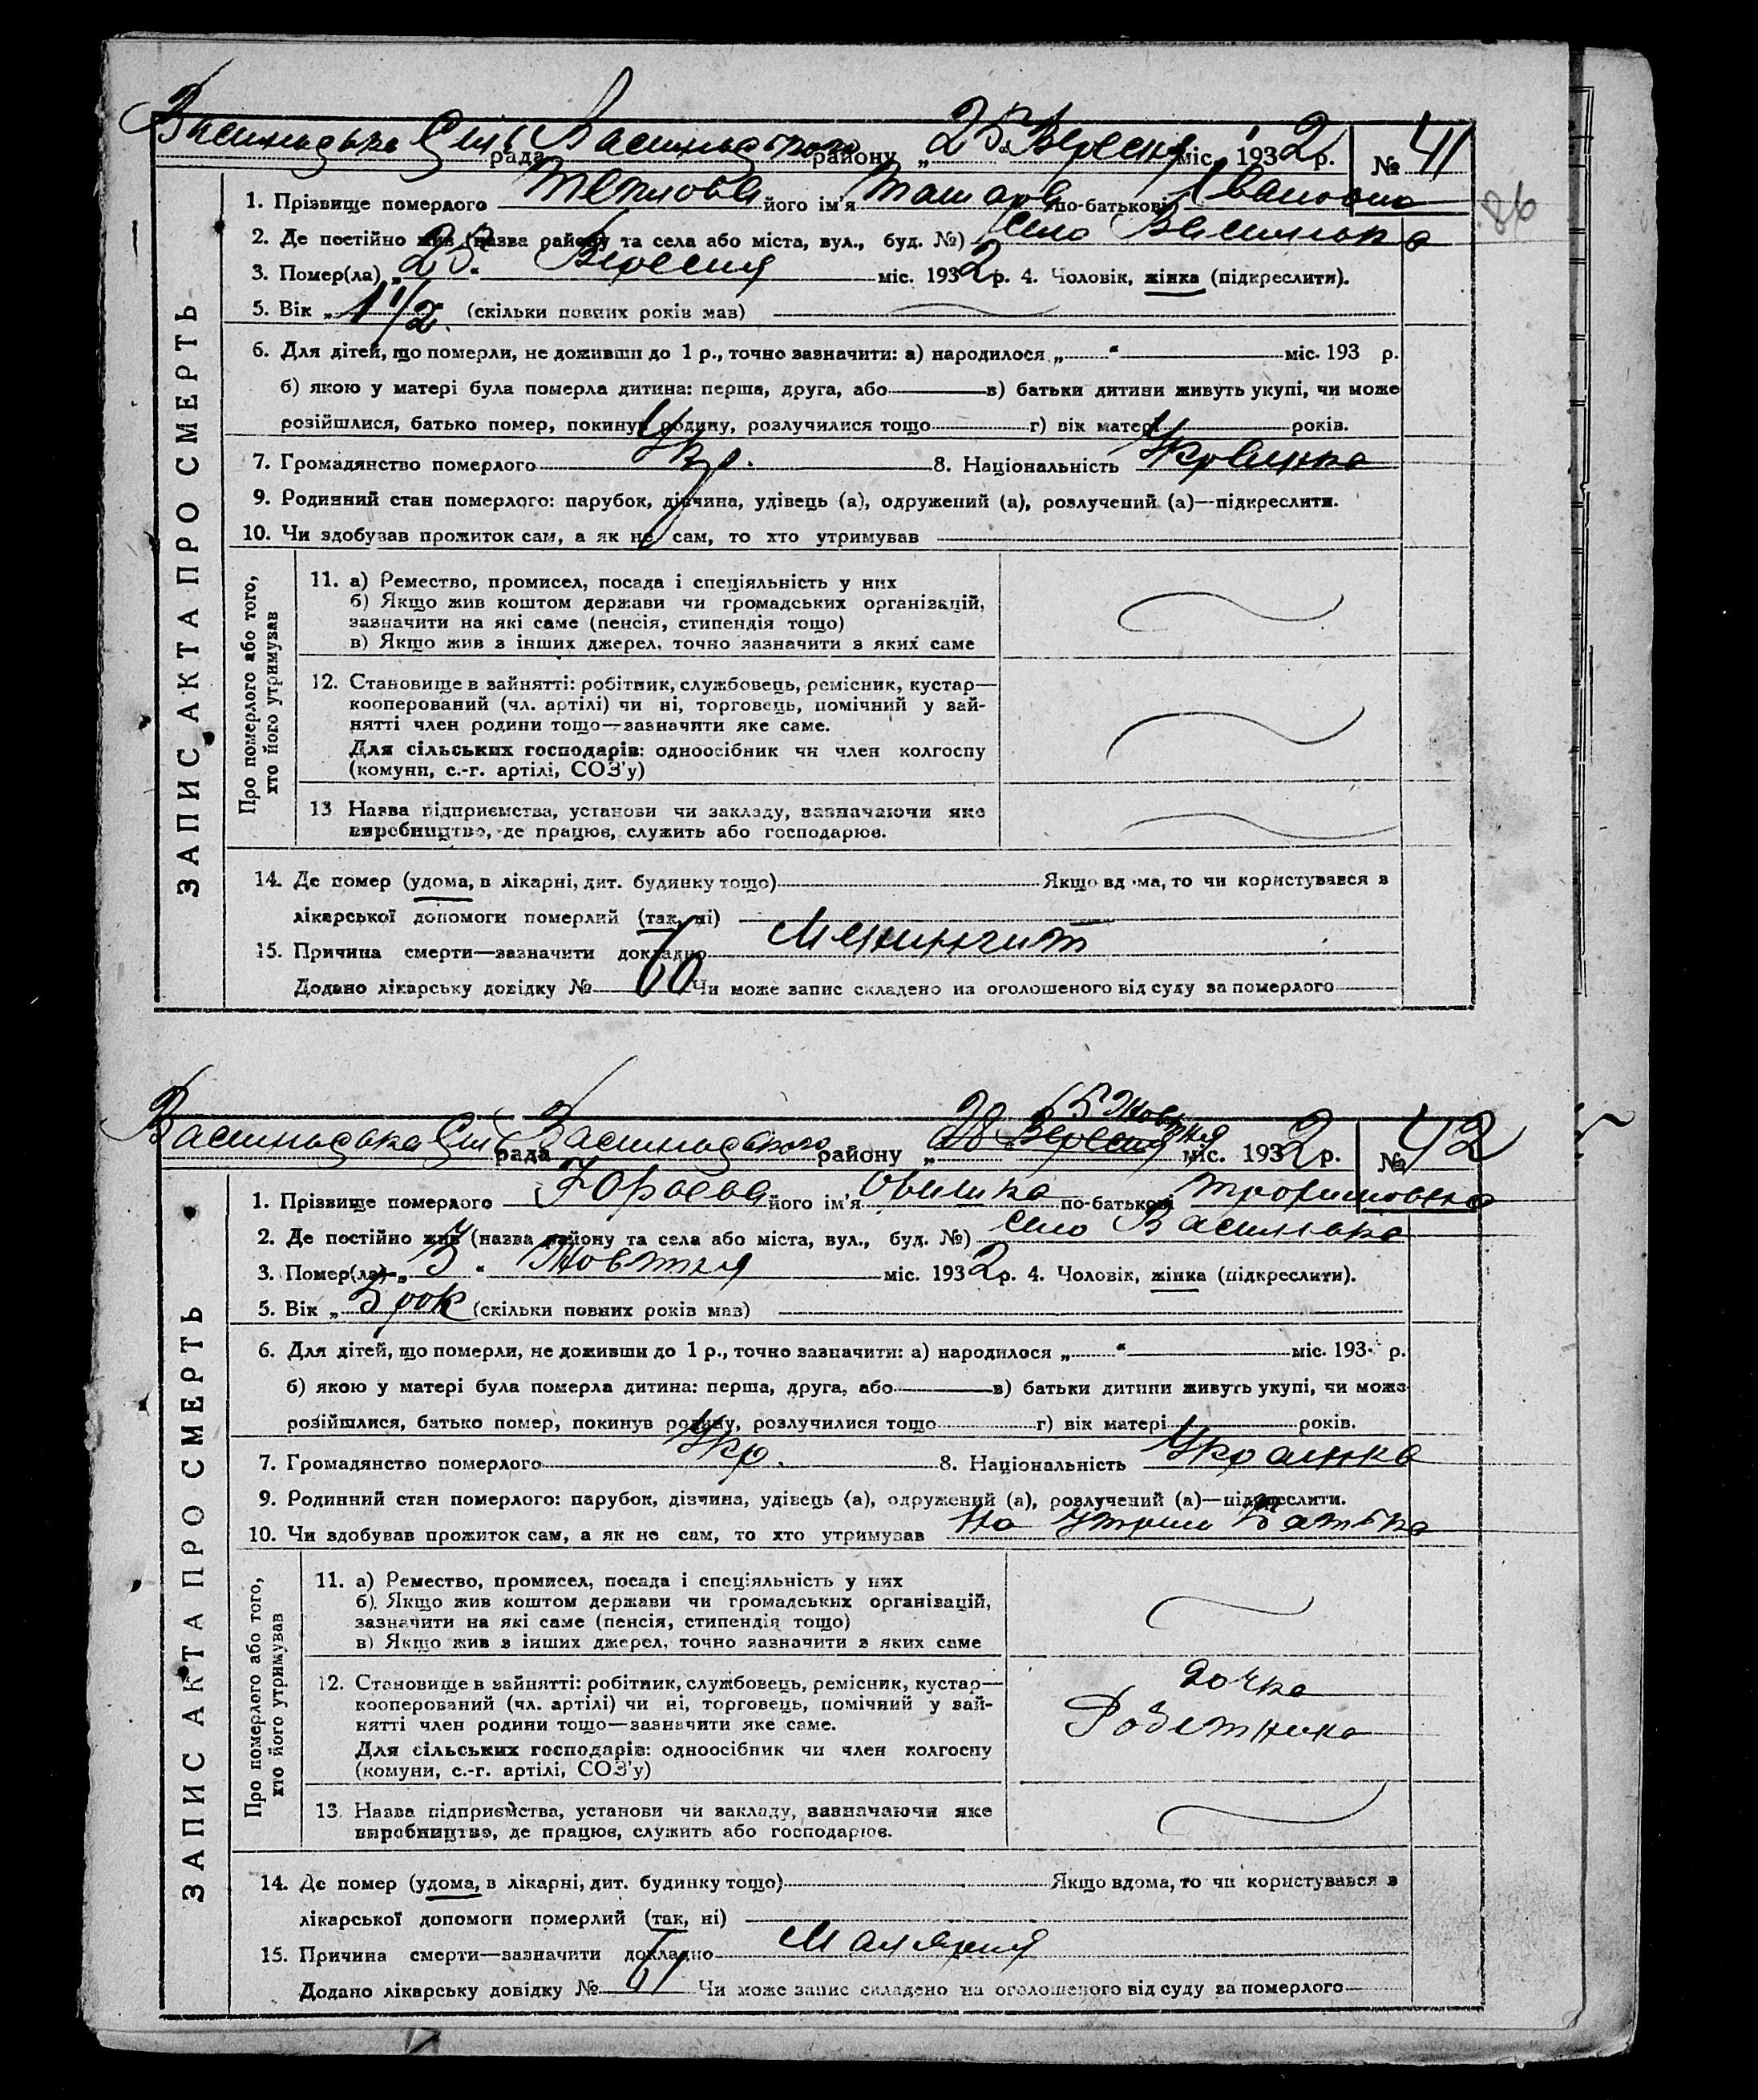 Васильківська Сіль рада Васильківського району „25“ Вересня міс. 1932 р. № 41
86
ЗАПИС АКТА ПРО СМЕРТЬ
1. Прізвище померлого Теплова його ім'я Тамара по-батькові Івановна
2. Де постійно жив (назва району та села або міста, вул., буд. №) село Васильків
3. Помер(ла) „25“ Вересня міс. 1932 р. 4. Чоловік, жінка (підкреслити).
5. Вік „1 1/2 (скільки повних років мав)
6. Для дітей, що померли, не доживши до 1 р., точно зазначити: а) народилося „ “ міс. 193 р.
б) якою у матері була померла дитина: перша, друга, або в) батьки дитини живуть укупі, чи може
розійшлися, батько помер, покинув родину, розлучилися тощо г) вік матері років.
7. Громадянство померлого Укр. 8. Національність Українка
9. Родинний стан померлого: парубок, дівчина, удівець (а), одружений (а), розлучений (а)—підкреслити.
10. Чи здобував прожиток сам, а як не сам, то хто утримував
Про померлого або того, хто його утримував
11. а) Ремество, промисел, посада і спеціяльність у них
б) Якщо жив коштом держави чи громадських організацій,
зазначити на які саме (пенсія, стипендія тощо)
в) Якщо жив з інших джерел, точно зазначити з яких саме
12. Становище в зайнятті: робітник, службовець, ремісник, кустар—
кооперований (чл. артілі) чи ні, торговець, помічний у зай-
нятті член родини тощо—зазначити яке саме.
Для сільських господарів: одноосібник чи член колгоспу
(комуни, с.-г. артілі, СОЗ'у)
13. Назва підприємства, установи чи закладу, зазначаючи яке
виробництво, де працює, служить або господарює.
14. Де помер (удома, в лікарні, дит. будинку тощо) Якщо вдома, то чи користувався з
лікарської допомоги померлий (так, ні)
15. Причина смерти—зазначити докладно Менингит
Додано лікарську довідку № 60 Чи може запис складено на оголошеного від суду за померлого
5 Жовтня
Васильківська Сіль рада Васильківського району „28 Вересня міс. 1932 р. № 42
ЗАПИС АКТА ПРО СМЕРТЬ
1. Прізвище померлого його ім'я по-батькові Трохимовна
2. Де постійно жив (назва району та села або міста, вул., буд. №) село Васильків
3. Помер(ла) „3“ Жовтня міс. 1932 р. 4. Чоловік, жінка (підкреслити).
5. Вік „3 рок (скільки повних років мав)
6. Для дітей, що померли, не доживши до 1 р., точно зазначити: а) народилося „ “ міс. 193 р.
б) якою у матері була померла дитина: перша, друга, або в) батьки дитини живуть укупі, чи може
розійшлися, батько помер, покинув родину, розлучилися тощо г) вік матері років.
7. Громадянство померлого Укр. 8. Національність Українка
9. Родинний стан померлого: парубок, дівчина, удівець (а), одружений (а), розлучений (а)—підкреслити.
10. Чи здобував прожиток сам, а як не сам, то хто утримував На утрим Батька
Про померлого або того, хто його утримував
11. а) Ремество, промисел, посада і спеціяльність у них
б) Якщо жив коштом держави чи громадських організацій,
зазначити на які саме (пенсія, стипендія тощо)
в) Якщо жив з інших джерел, точно зазначити з яких саме
12. Становище в зайнятті: робітник, службовець, ремісник, кустар—
кооперований (чл. артілі) чи ні, торговець, помічний у зай-
нятті член родини тощо—зазначити яке саме.
Для сільських господарів: одноосібник чи член колгоспу
(комуни, с.-г. артілі, СОЗ'у)
дочка
Робітника
13. Назва підприємства, установи чи закладу, зазначаючи яке
виробництво, де працює, служить або господарює.
14. Де помер (удома, в лікарні, дит. будинку тощо) Якщо вдома, то чи користувався з
лікарської допомоги померлий (так, ні)
15. Причина смерти—зазначити докладно Малярия
Додано лікарську довідку № 61 Чи може запис складено на оголошеного від суду за померлого